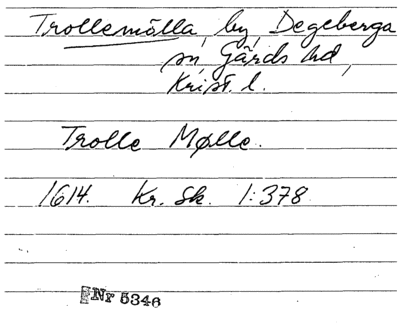 Trollemölla, by, Degeberga
sn, Gärds hd,
Krist. l.
Trolle Mølle.
1614. Kr. Sk. 1:378
Nr 5346